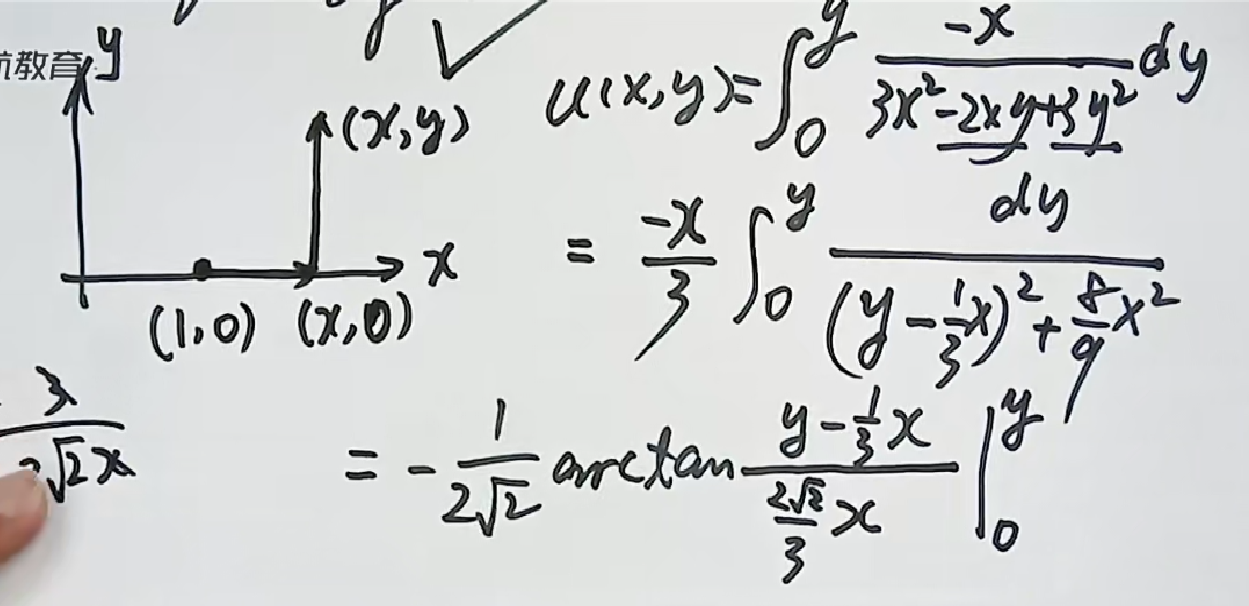 航教育
y
(x,y)
x
(1,0) (x,0)
u(x,y)=∫₀^y \frac{-x}{3x²-2xy+3y²} dy
= \frac{-x}{3} ∫₀^y \frac{dy}{(y-\frac{1}{3}x)²+\frac{8}{9}x²}
\frac{3}{2\sqrt{2}x}
= -\frac{1}{2\sqrt{2}} arctan \frac{y-\frac{1}{3}x}{\frac{2\sqrt{2}}{3}x} |₀^y